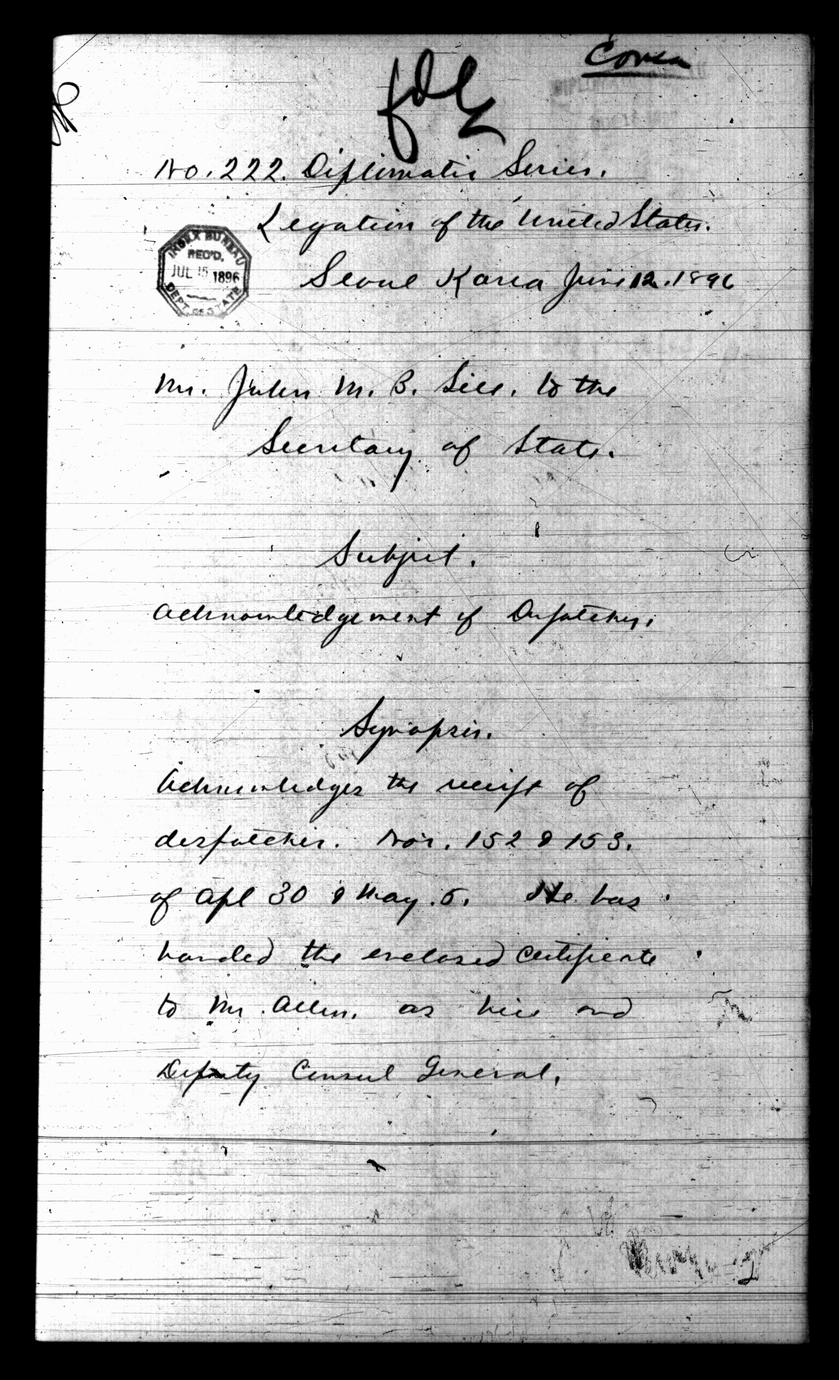 Corea
No. 222. Diplomatic Series.
Legation of the United States.
INDEX BUREAU
REC'D.
JUL 15 1896
DEPT. OF STATE
Seoul Korea June 12. 1896
Mr. John M. B. Sill. to the
Secretary of State.
Subject.
Acknowledgement of Despatches.
Synopsis.
Acknowledges the receipt of
despatches. Nos. 152 & 153.
of Apl 30 & May. 5. He has
handed the enclosed certificate
to Mr. Allen. as Vice and
Deputy Consul General.